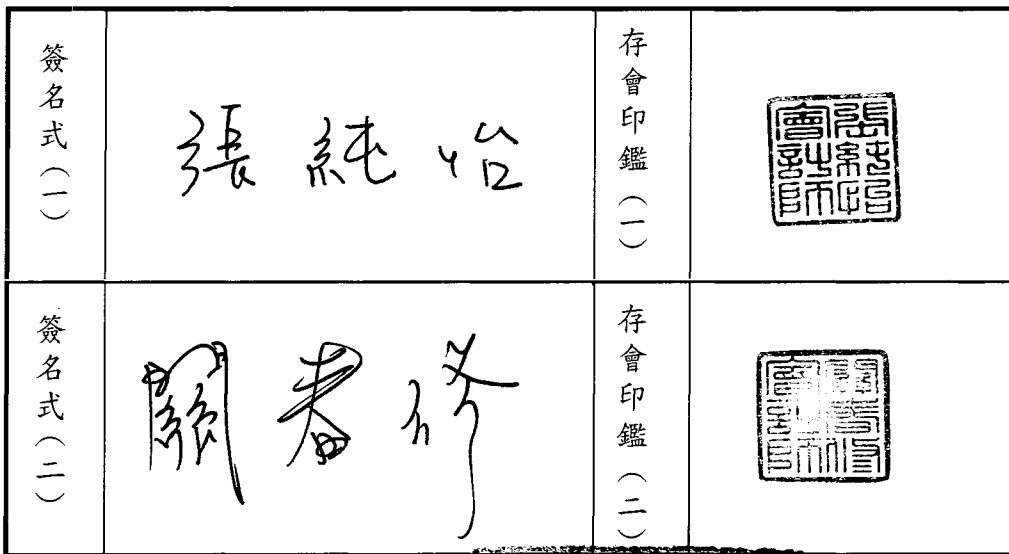 簽名式（一）
張純怡
存會印鑑（一）
張純怡會計師
簽名式（二）
關春修
存會印鑑（二）
關春修會計師